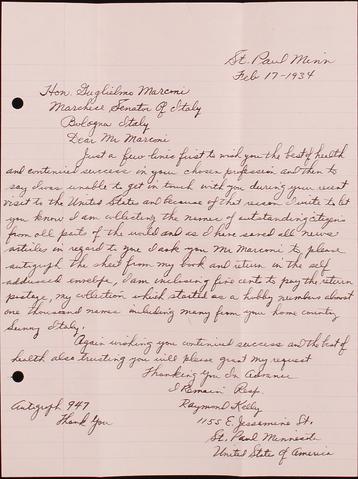 St. Paul Minn
Feb 17-1934
Hon. Guglielmo Marconi
Marchese Senator of Italy
Bologna Italy
Dear Mr Marconi
Just a few lines first to wish you the best of health
and continued success in your chosen profession and then to
say I was unable to get in touch with you during your recent
visit to the United States and because of that reason I write to let
you know I am collecting the names of outstanding citizens
from all parts of the world and as I have saved all news
articles in regard to you I ask you Mr Marconi to please
autograph the sheet from my book and return in the self
addressed envelope, I am inclosing five cents to pay the return
postage, my collection which started as a hobby numbers almost
one thousand names including many from your home country
Sunny Italy.
Again wishing you continued success and the best of
health also trusting you will please grant my request
Thanking You In Advance
I Remain Resp.
Autograph 947
Raymond Kelly
Thank You
1155 E. Jessamine St.
St. Paul Minnesota
United States of America